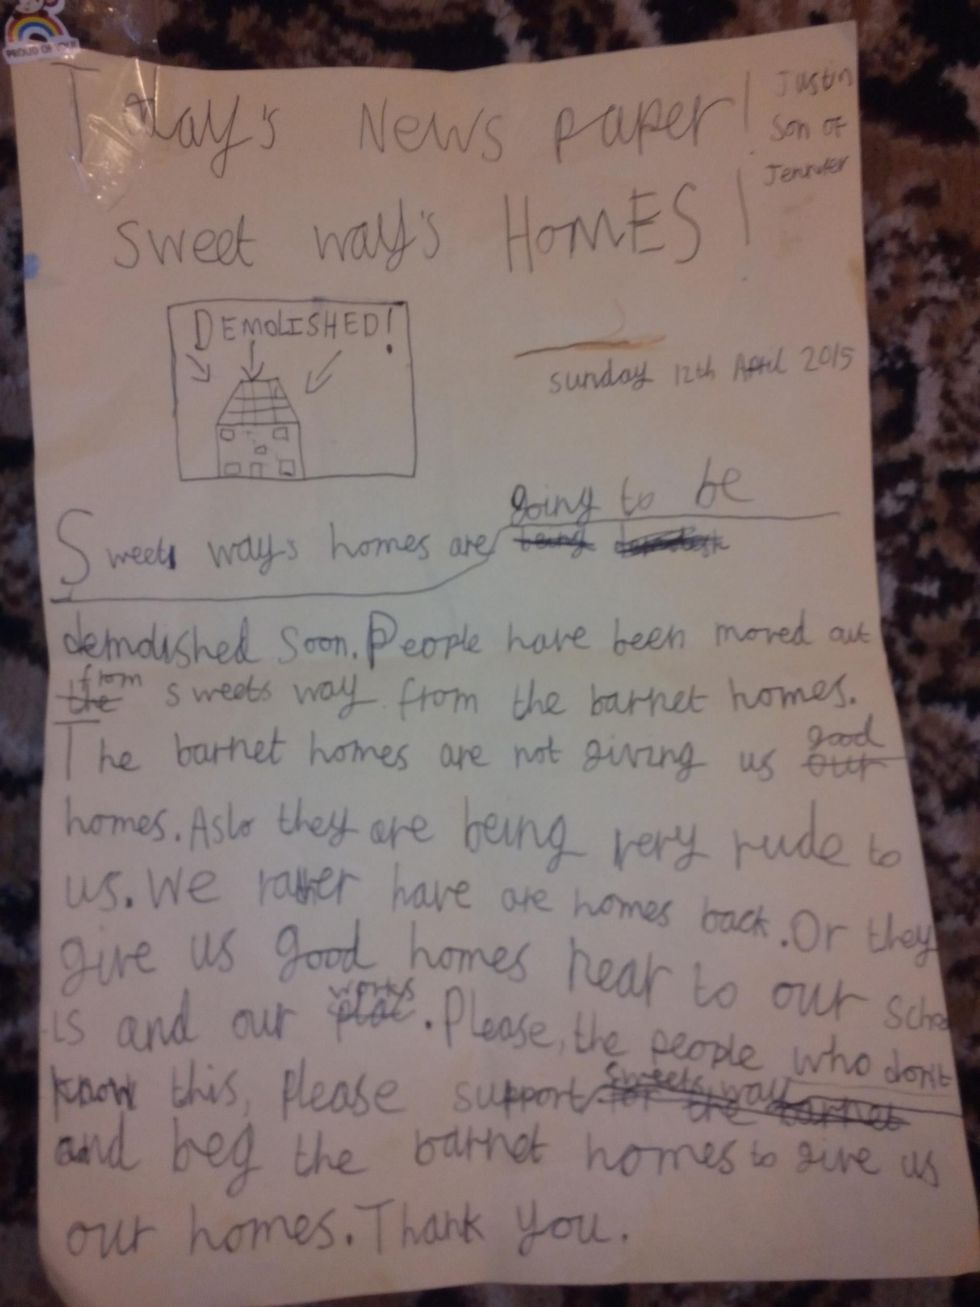 PROUD OF YOU!
Today's News paper!
Justin
Son of
Jennifer
sweet way's HOMES!
DEMOLISHED!
sunday 12th April 2015
going to be
Sweets way's homes are being
demolished soon. People have been moved out
from
the sweets way from the barnet homes.
good
The barnet homes are not giving us our
homes. Aslo they are being very rude to
us. We rather have are homes back. Or they
give us good homes near to our scho
works
is and our plac. Please, the people who don't
sweets way
know this, please support for the barnet
and beg the barnet homes to give us
our homes. Thank you.